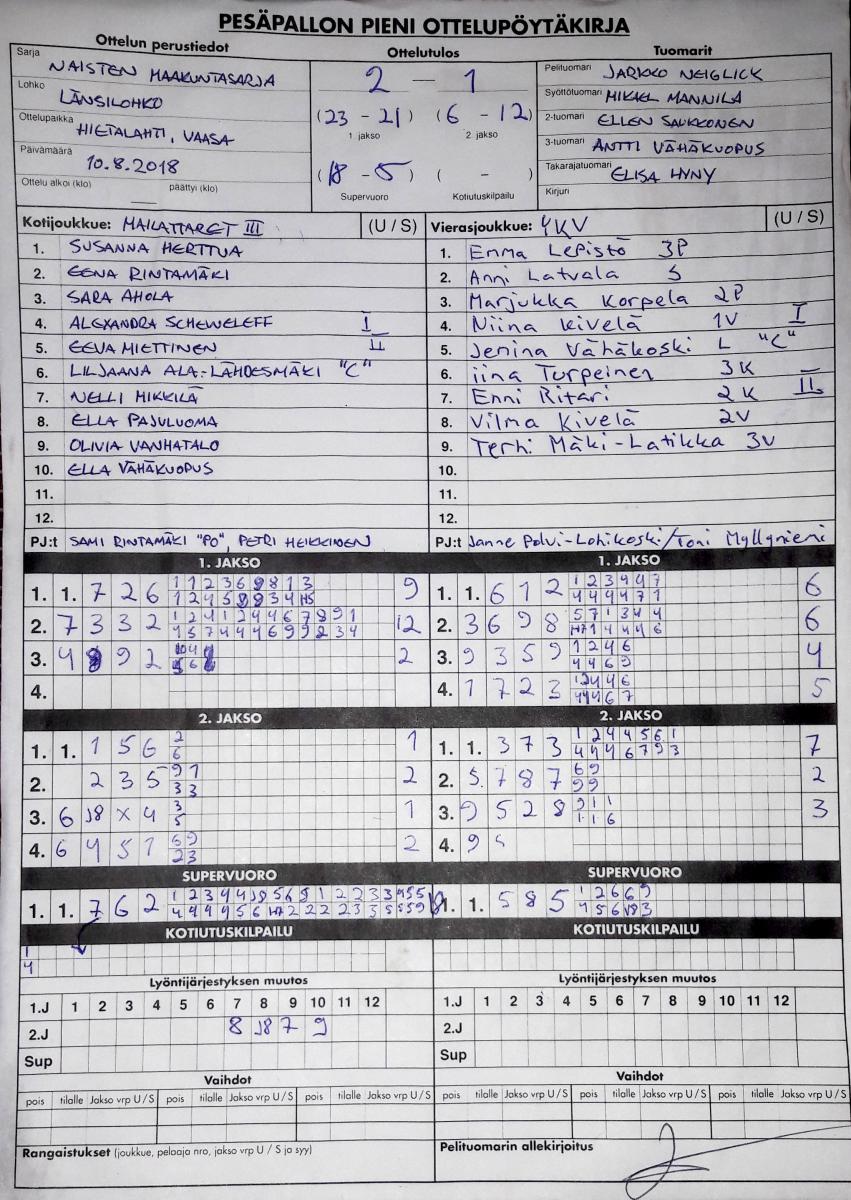 PESÄPALLON PIENI OTTELUPÖYTÄKIRJA
Ottelun perustiedot Ottelutulos Tuomarit
Sarja NAISTEN MAAKUNTASARJA
Lohko LÄNSILOHKO
Ottelupaikka HIETALAHTI, VAASA
Päivämäärä 10.8.2018
Ottelu alkoi (klo) päättyi (klo)
2 — 1
(23 - 21) (6 - 12)
1 jakso 2. jakso
(18 - 5) ( - )
Supervuoro Kotiutuskilpailu
Pelituomari JARKKO NEIGLICK
Syöttötuomari MIKAEL MANNILA
2-tuomari ELLEN SAUKKONEN
3-tuomari ANTTI VÄHÄKUOPUS
Takarajatuomari ELISA HYNY
Kirjuri
Kotijoukkue: MAILATTARET III (U / S)
1. SUSANNA HERTTUA
2. EENA RINTAMÄKI
3. SARA AHOLA
4. ALEXANDRA SCHEWELEFF I
5. EEVA MIETTINEN II
6. LILJAANA ALA-LÄHDESMÄKI "C"
7. NELLI MIKKILÄ
8. ELLA PAJULUOMA
9. OLIVIA VANHATALO
10. ELLA VÄHÄKUOPUS
11.
12.
PJ:t SAMI RINTAMÄKI "PO", PETRI HEIKKINEN
Vierasjoukkue: YKV (U / S)
1. Emma Lepistö 3P
2. Anni Latvala S
3. Marjukka Korpela 2P
4. Niina Kivelä 1V I
5. Jenina Vähäkoski L "C"
6. iina Turpeinen 3K
7. Enni Ritari 2K II
8. Vilma Kivelä 2V
9. Terhi Mäki-Latikka 3V
10.
11.
12.
PJ:t Janne Polvi-Lohikoski/Toni Myllyniemi
1. JAKSO
1. 1. 7 2 6 9
2. 7 3 3 2 12
3. 4 9 2 2
4.
1. JAKSO
1. 1. 6 1 2 1 2 3 4 4 7 6
4 4 4 4 7 1
2. 3 6 9 8 5 7 1 3 4 4 6
3. 9 3 5 9 1 2 4 6 4
4 4 6 9
4. 1 7 2 3 5
2. JAKSO
1. 1. 1 5 6 2 1
6
2. 2 3 5 9 1 2
3 3
3. 6 J8 X 4 3 1
5
4. 6 4 5 1 6 9 2
2 3
2. JAKSO
1. 1. 3 7 3 1 2 4 4 5 6 1 7
4 4 4 6 7 9 3
2. 5 7 8 7 6 9 2
9 9
3. 9 5 2 8 9 1 1 3
1 1 6
4. 9
SUPERVUORO
1. 1. 7 6 2
SUPERVUORO
1. 1. 5 8 5 1 2 6 6 9
KOTIUTUSKILPAILU
1
4
KOTIUTUSKILPAILU
Lyöntijärjestyksen muutos
1.J 1 2 3 4 5 6 7 8 9 10 11 12
2.J 8 J8 7 9
Sup
Lyöntijärjestyksen muutos
1.J 1 2 3 4 5 6 7 8 9 10 11 12
2.J
Sup
Vaihdot
pois tilalle Jakso vrp U / S pois tilalle Jakso vrp U / S pois tilalle Jakso vrp U / S
Vaihdot
pois tilalle Jakso vrp U / S pois tilalle Jakso vrp U / S pois tilalle Jakso vrp U / S
Rangaistukset (joukkue, pelaaja nro, jakso vrp U / S ja syy)
Pelituomarin allekirjoitus